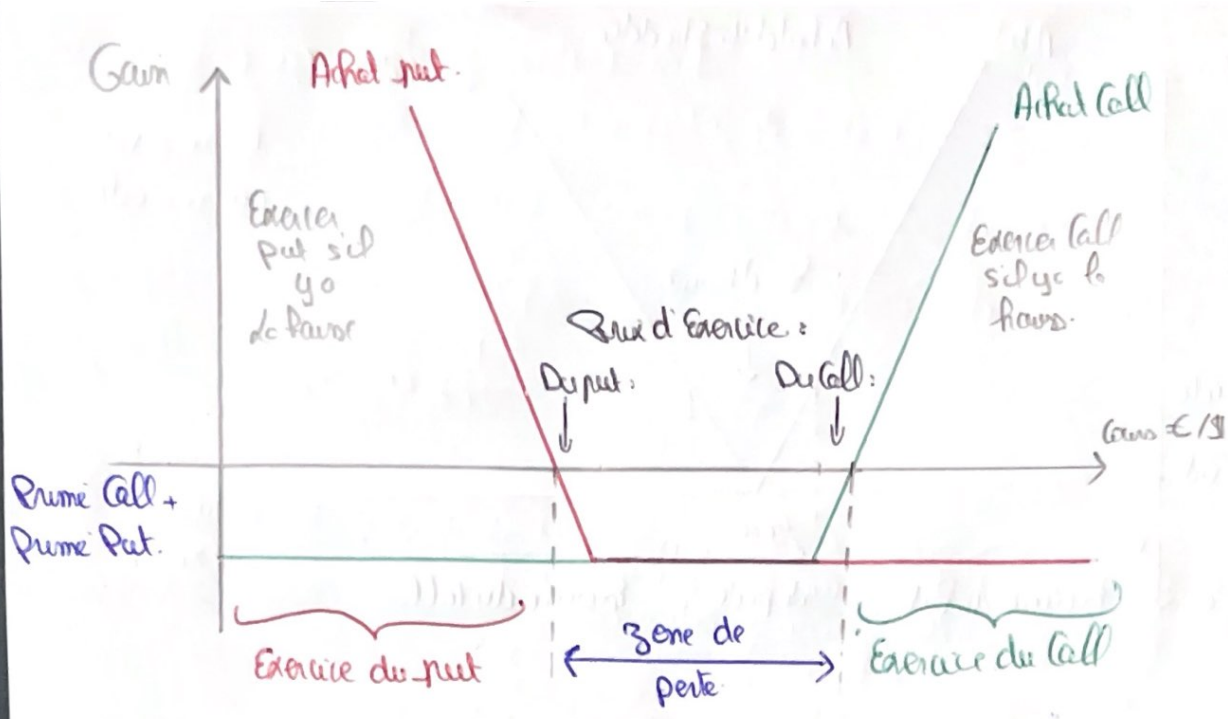 Gain
Achat put.
Achat Call
Exercer
put s'il
y a
la hausse
Exercer Call
s'il y a la
hauss.
Prix d'Exercice :
Du put :
Du Call :
Cours €/$
Prime Call +
Prime Put.
Exercice du put
zone de
perte
Exercice du Call